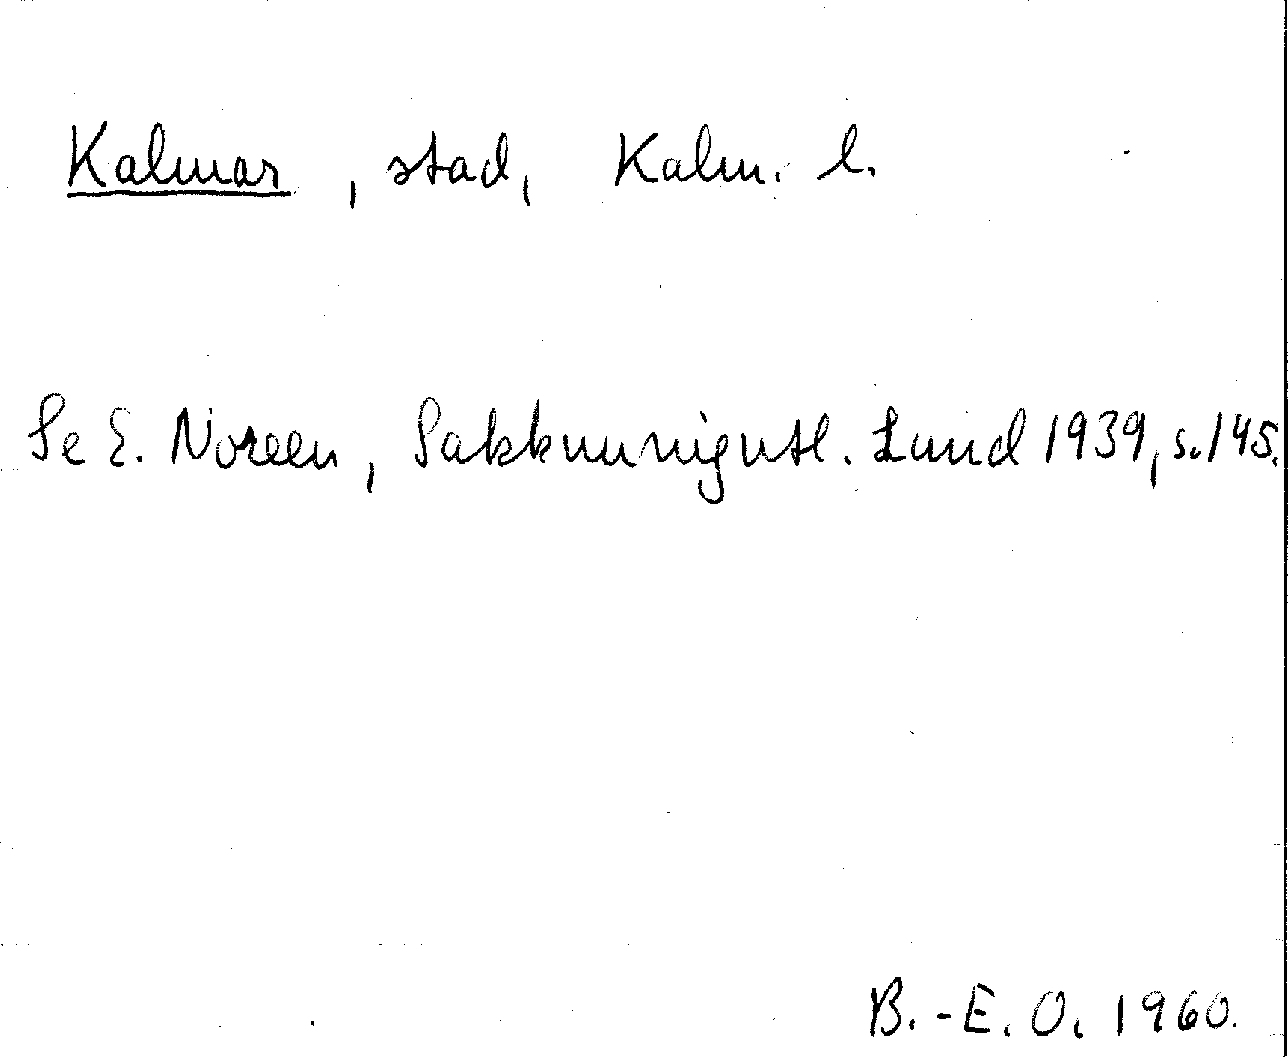 Kalmar, stad, Kalm. l.
Se E. Noreen, Sakkunnigutl. Lund 1939, s. 145.
B.-E. O. 1960.